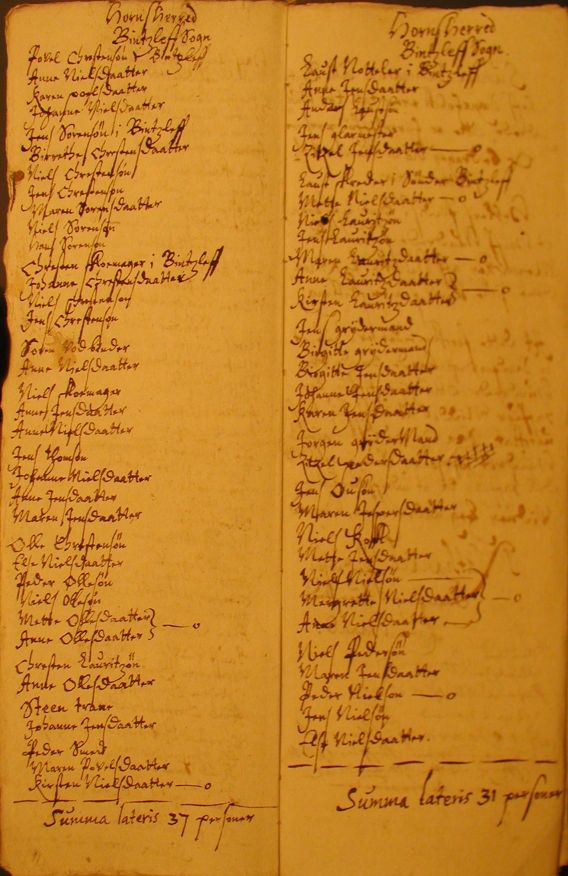 Horns Herred
Bintzleff Sogn
Povel Chrestensøn i Bintzleff
Anne Nielsdaatter
Karen povlsdaatter
Johanne Nielsdaatter
Jens Sørensøn i Bintzleff
Birrethe Chrestensdaatter
Niels Chrestensøn
Jens Chrestensøn
Maren Sørensdaatter
Niels Sørensøn
Hans Sørensøn
Chresten skoemager i Bintzleff
Johanne Chrestensdaatter
Niels Chrestensøn
Jens Chrestensøn
Søren
Anne Nielsdaatter
Niels Skoemager
Anne Jensdaatter
Anne Nielsdaatter
Jens Thomsøn
Johanne Nielsdaatter
Anne Jensdaatter
Maren Jensdaatter
Olle Chrestensøn
Else Nielsdaatter
Peder Ollesøn
Niels Ollesøn
Mette Ollesdaatter
Anne Ollesdaatter — o
Chresten Lauritzøn
Anne Ollesdaatter
Steen trane
Johanne Jensdaatter
Peder Smed
Maren Povelsdaatter
Kirsten Nielsdaatter — o
Summa lateris 37 personer
Horns Herred
Bintzleff Sogn.
Laust i Bintzleff
Anne Jensdaatter
Anders
Jens
Zitzel Jensdaatter — o
Laust skreder i Sønder Bintzleff
Mette Nielsdaatter — o
Niels Lauritzøn
Jens Lauritzøn
Maren Lauritzdaatter — o
Anne Lauritzdaatter
Kirsten Lauritzdaatter — o
Jens grydermand
Birgitte grydermands
Birgitte Jensdaatter
Johanne Jensdaatter
Karen Jensdaatter
Jørgen gryderMand
Zitzel pedersdaatter
Jens Ousøn
Maren Jespersdaatter
Niels
Mette Jensdaatter
Niels Nielsøn
Margrette Nielsdaatter — o
Anne Nielsdaatter
Niels Pedersøn
Maren Jensdaatter
Peder Nielsøn — o
Jens Nielsøn
Else Nielsdaatter.
Summa lateris 31 personer